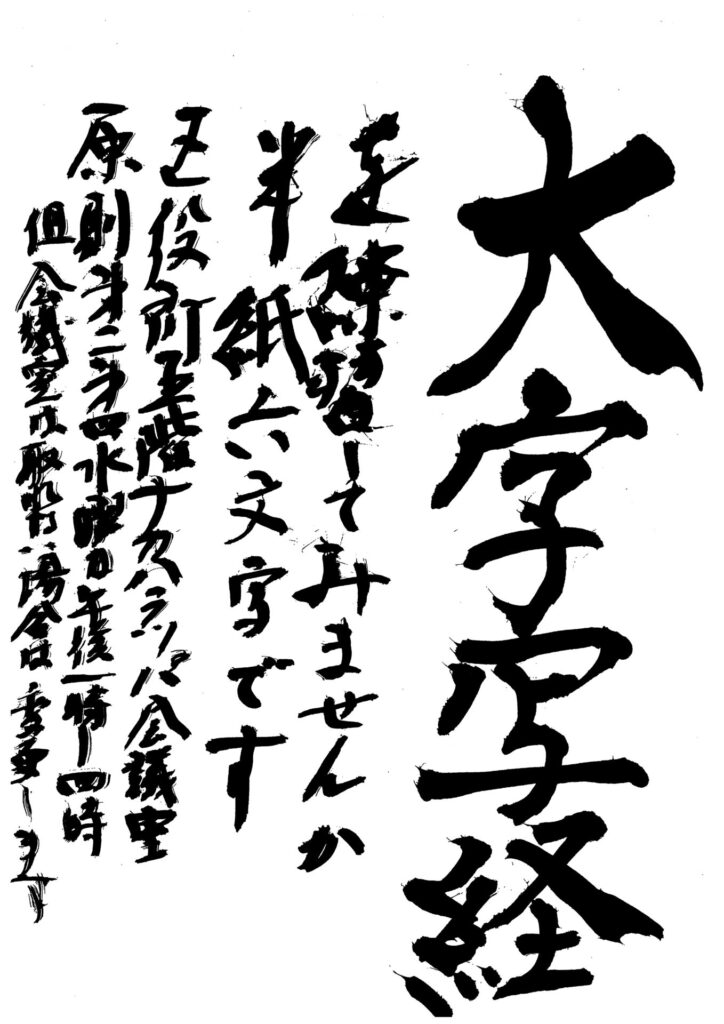 大字写経
を練習してみませんか
半紙六文字です
区役所五階ナカハラッパ会議室
原則第二第四水曜日午後一時〜四時
但会議室は取れない場合は変更します